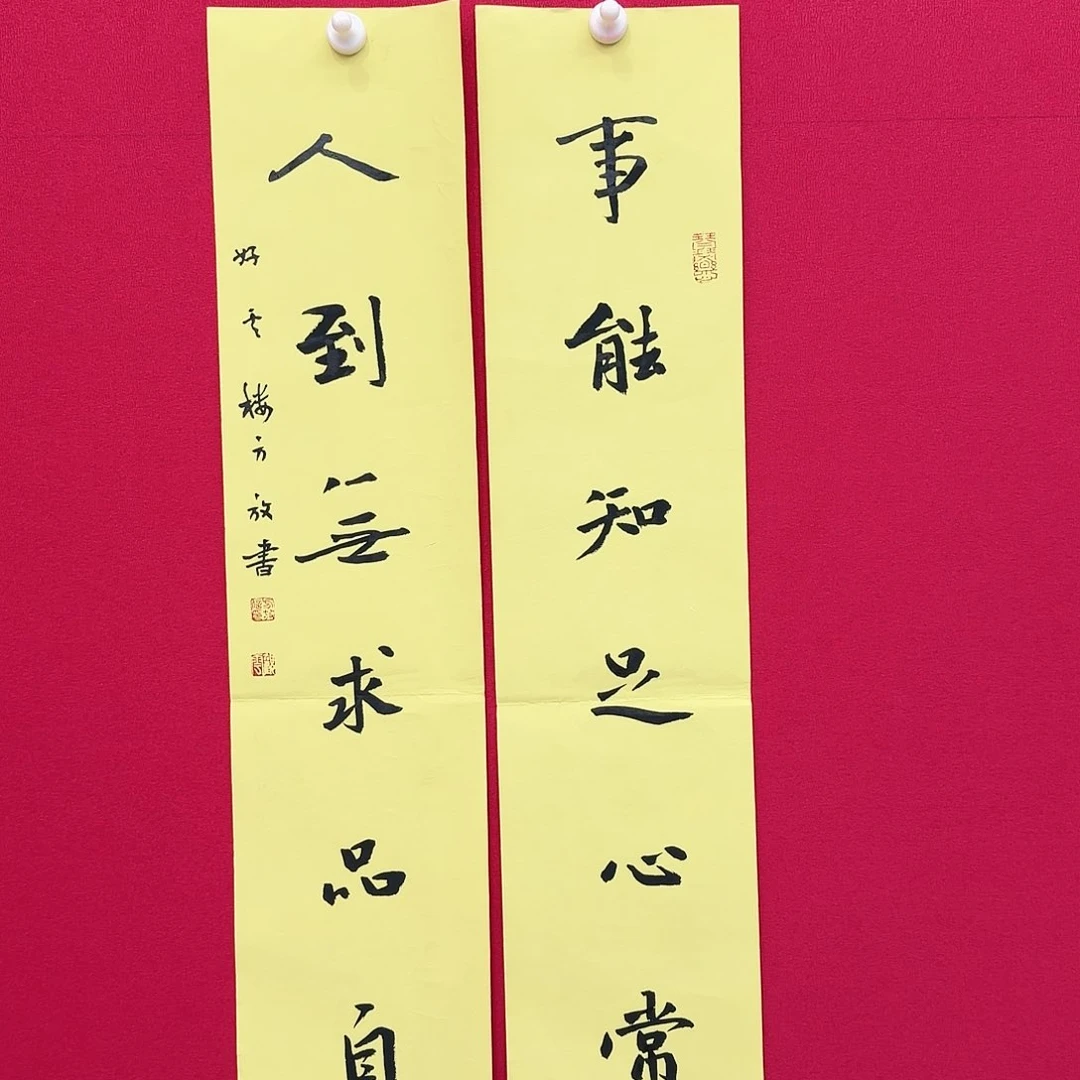 事能知足心常
人到無求品自
好云楼方放書